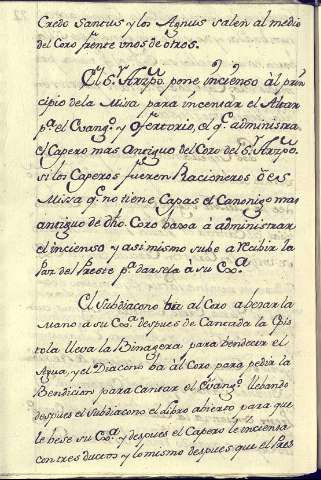 Credo Sanctus y los Agnus salen al medio
del Coro frente unos de otros.
El S.r Arzpo. pone incienso al prin
cipio de la Missa para incensar el Altar
p.a el Evang.o y Ofertorio, el q.e administra
el Capero mas Antiguo del Coro del S.r Arzpo.
si los Caperos fueren Racioneros ò es
Missa q.e no tiene Capas el Canonigo mas
antiguo de dho. Coro baxa à administrar
el incienso y asi mismo sube a recibir la
Paz del Preste p.a darsela à su Ex.a
El Subdiacono ba al Coro a besar la
Mano a su Ex.a despues de Cantada la Epis
tola lleva la Binagera para bendecir el
Agua, y el Diacono ba àl Coro, para pedir la
Bendicion para Cantar el Evang.o llebando
despues el Subdiacono el Libro abierto para que
le bese su Ex.a y despues el Capero le inciensa
con tres ductos y lo mismo despues que el Pres